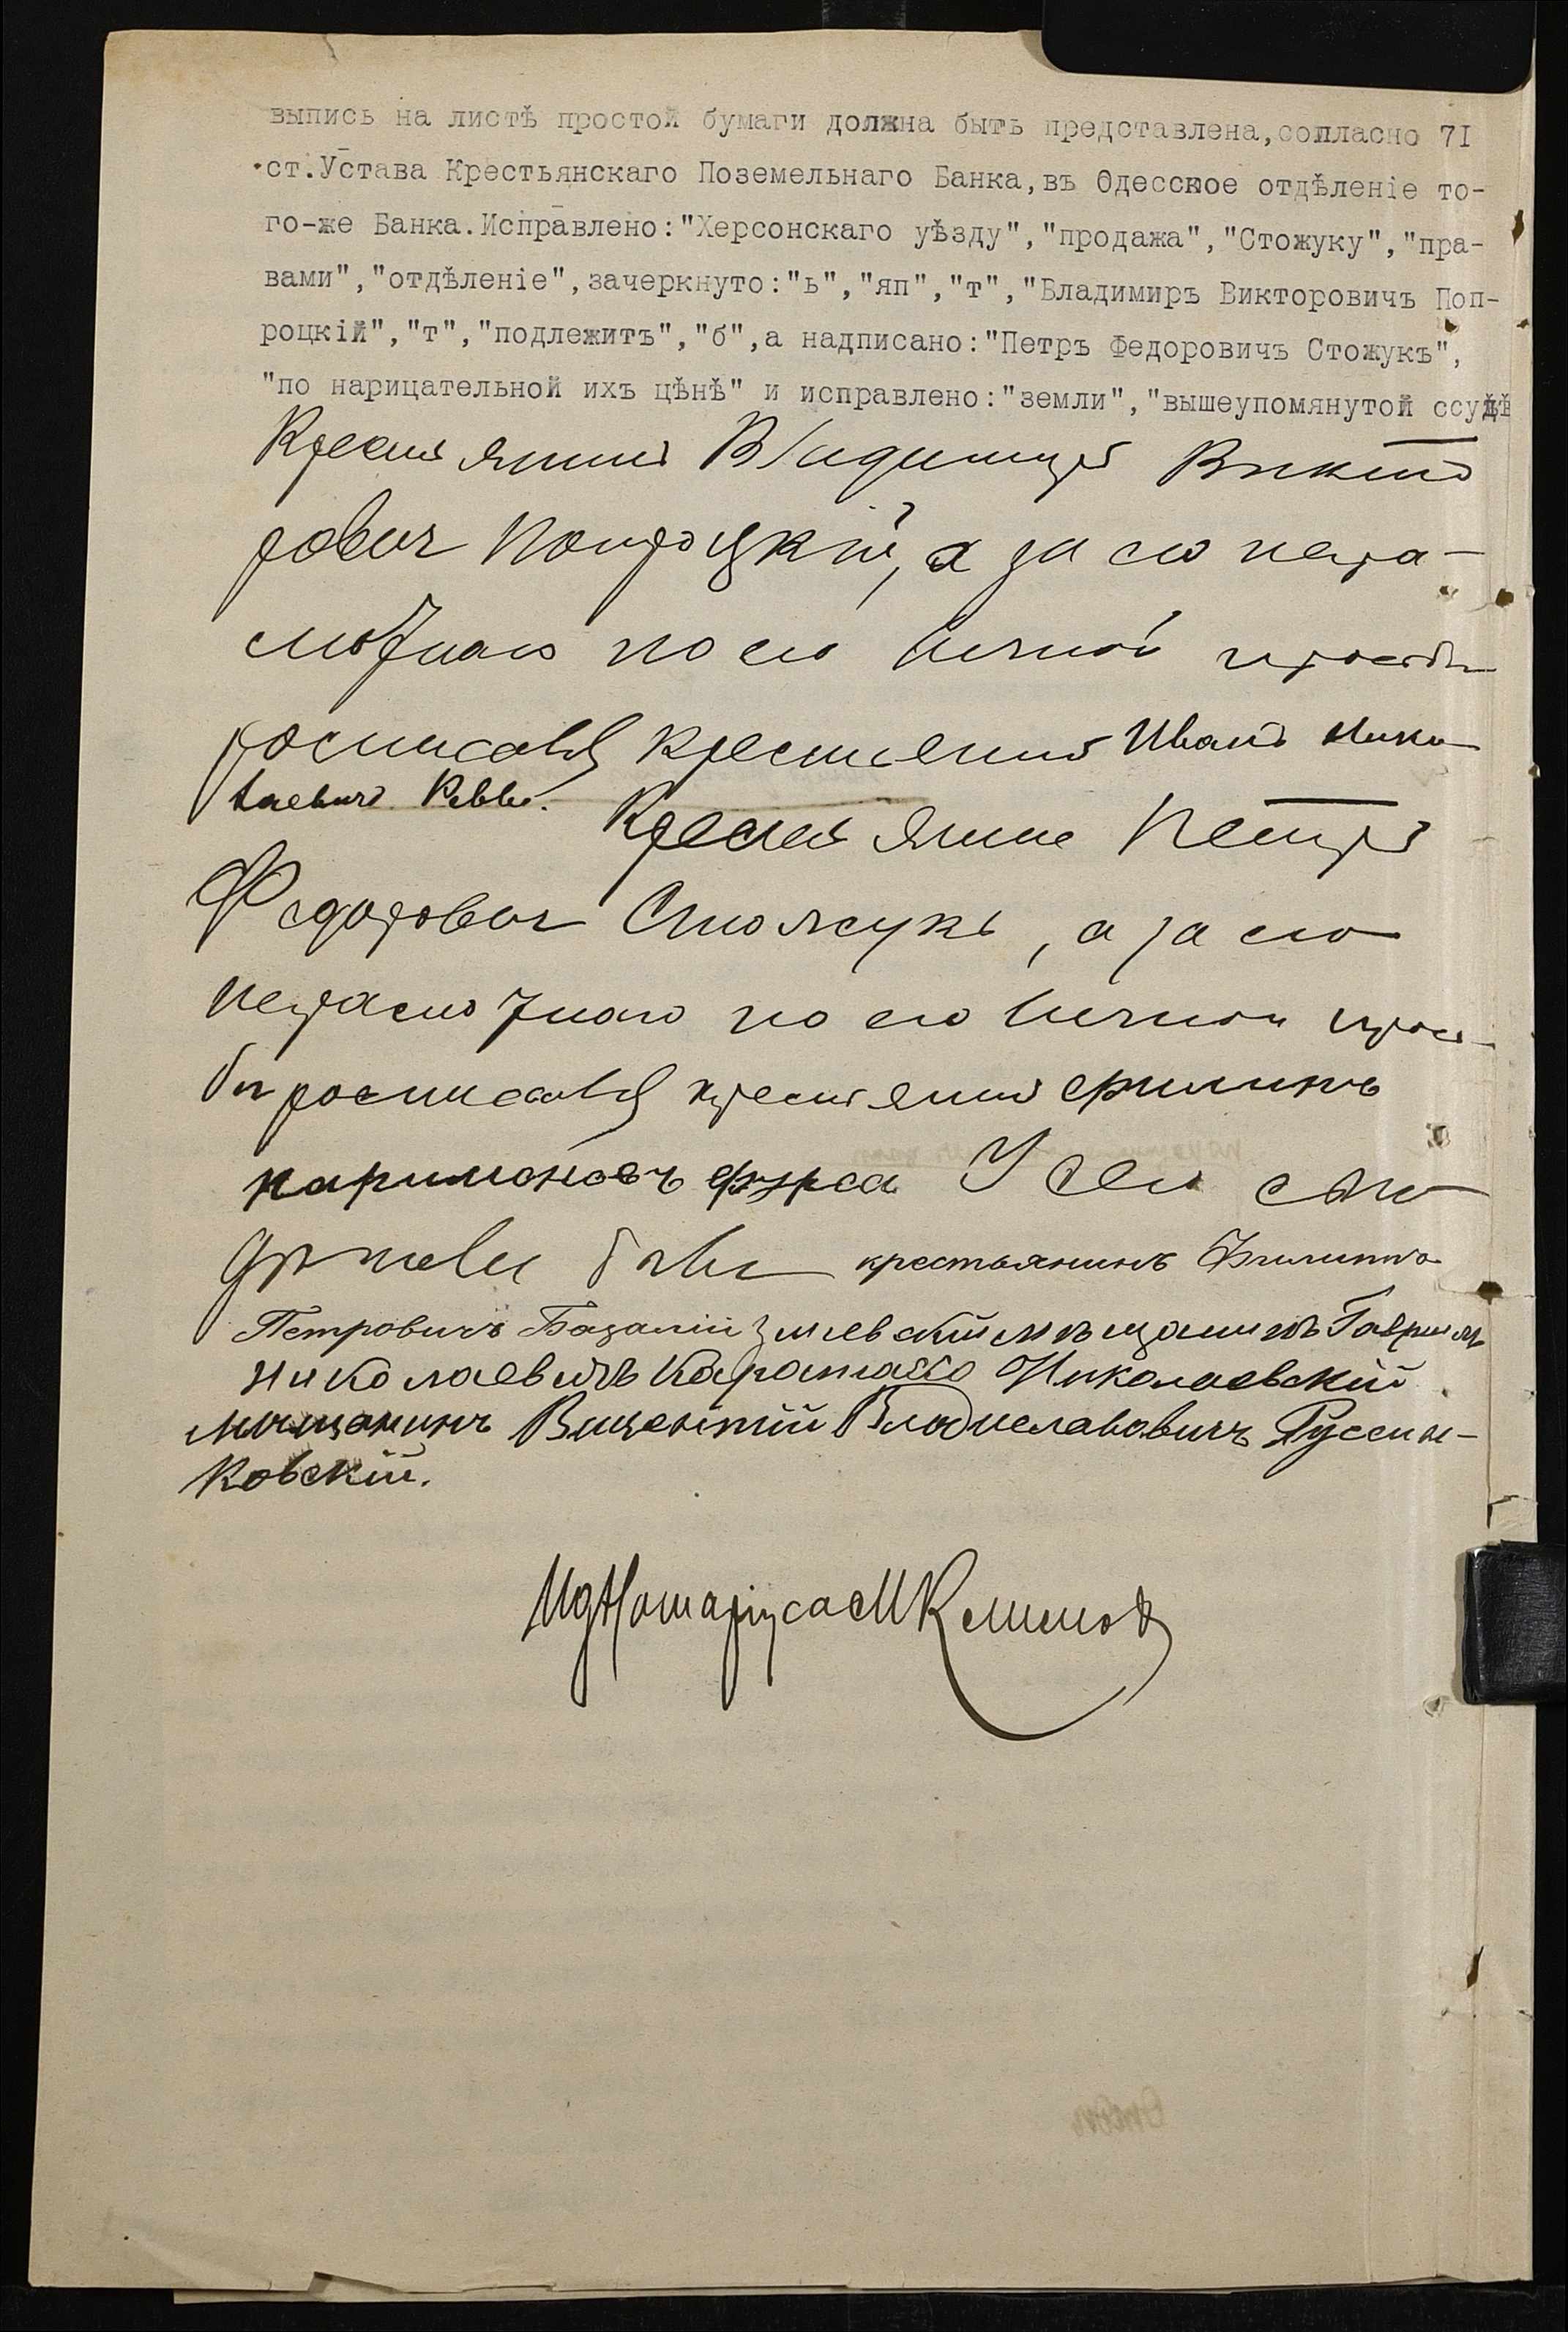 выпись на листѣ простой бумаги должна быть представлена,согласно 7I
ст.Устава Крестьянскаго Поземельнаго Банка,въ Одесское отдѣленіе то-
го-же Банка.Исправлено:"Херсонскаго уѣзду","продажа","Стожуку","пра-
вами","отдѣленіе",зачеркнуто:"ь","яп","т","Владимиръ Викторовичъ Поп-
роцкій","т","подлежитъ","б",а надписано:"Петръ Федоровичъ Стожукъ",
"по нарицательной ихъ цѣнѣ" и исправлено:"земли","вышеупомянутой ссудѣ
Крестьянинъ Владимиръ Викто
рович Попроцкій, а за его негра-
мотнаго по его личной просьбѣ
росписался крестьянинъ Иванъ Нико
лаевичъ
Крестьянинъ Петръ
Федорович Стожукъ, а за его
неграмотнаго по его личной прось-
бѣ росписался крестьянинъ Филипъ
У сей сдѣлки
были крестьянинъ Филиппъ
Петровичъ Базалій Змиевскій мѣщанинъ Гавріилъ
Николаевичъ Николаевскій
мѣщанинъ Викентій Владиславовичъ Руссин-
ковскій.
ИдНотаріуса